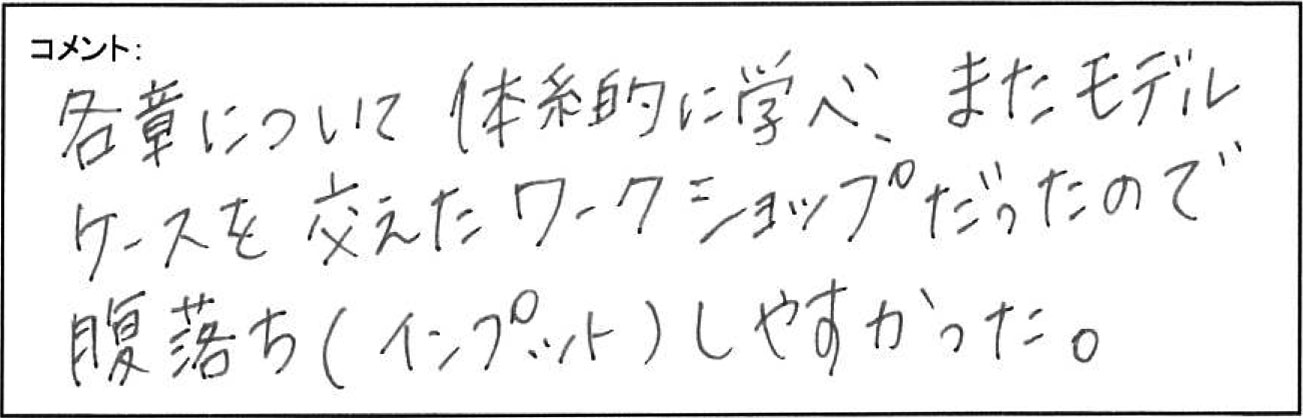 コメント:
各章について体系的に学べ、またモデル
ケースを交えたワークショップだったので
腹落ち(インプット)しやすかった。